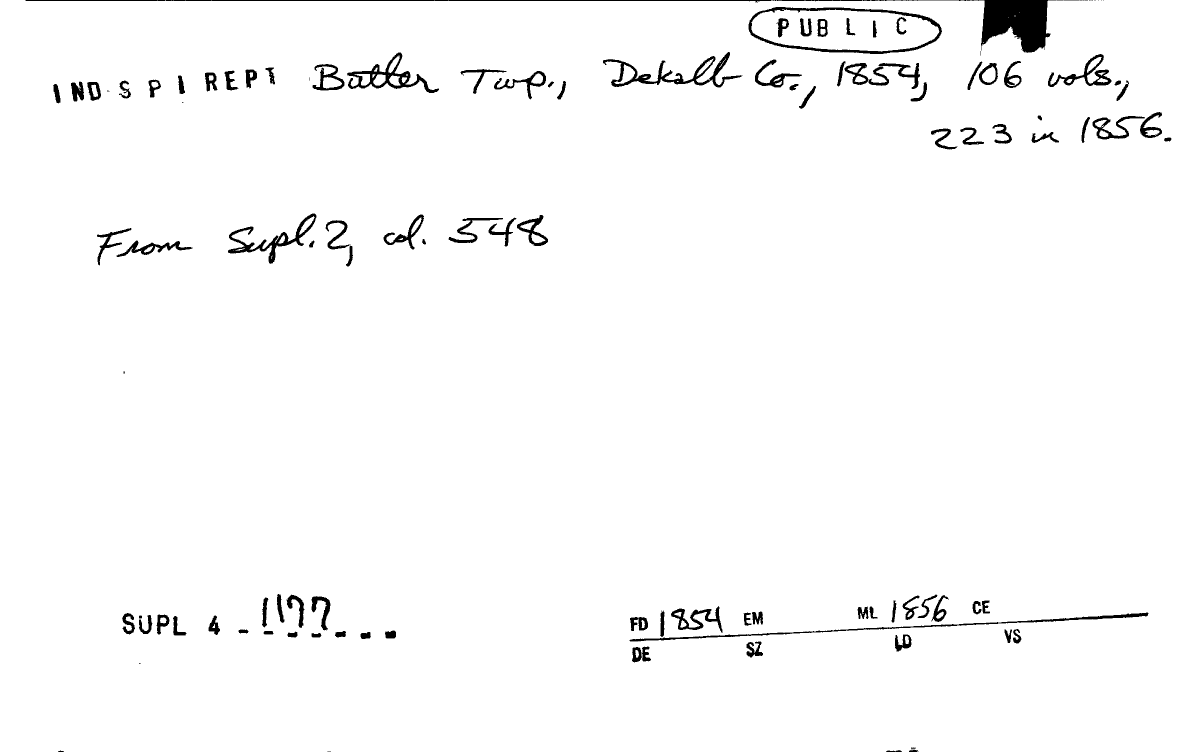 PUBLIC
IND SPI REPT Butler Twp., Dekalb Co., 1854, 106 vols.,
223 in 1856.
From Supl. 2, col. 548
SUPL 4 - 1177
FD 1854 EM ML 1856 CE
DE SZ LD VS